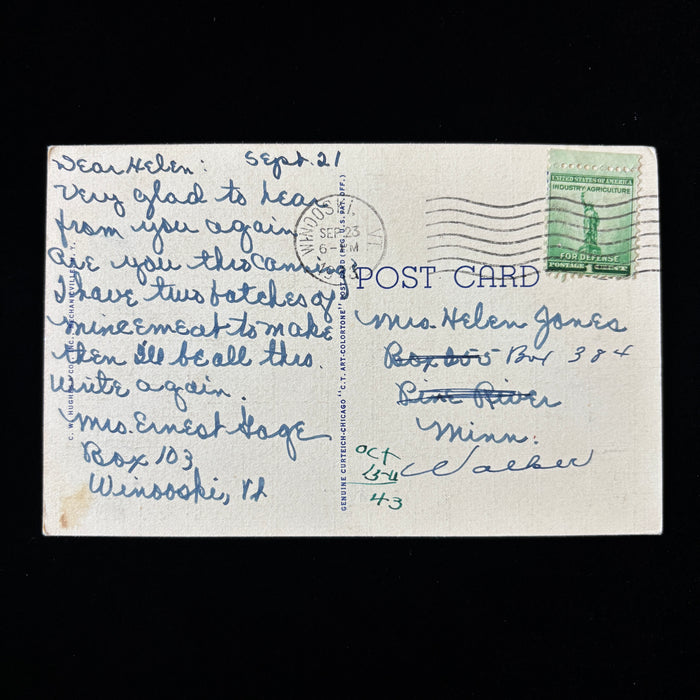 Dear Helen: Sept. 21
Very glad to hear
from you again.
Are you thro canning
I have two batches of
mincemeat to make
then I'll be all thro.
Write again.
Mrs. Ernest Gage
Box 103
Winooski, Vt
GENUINE CURTEICH-CHICAGO "C.T. ART-COLORTONE" POST CARD (REG. U.S. PAT. OFF.)
WINOOSKI, VT.
SEP 23
6-PM
1943
UNITED STATES OF AMERICA
INDUSTRY-AGRICULTURE
FOR DEFENSE
POSTAGE 1 CENT
POST CARD
Mrs. Helen Jones
Box 205 Box 384
Pine River
Minn.
Walker
OCT
43